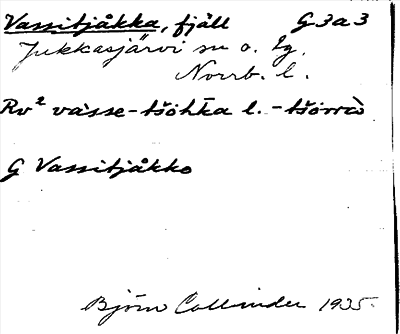 Vassitjåkka, fjäll G 3 a 3
Jukkasjärvi sn o. Lg.
Norrb. l.
Rv² vàsse-tšöhka l. -tšorrò
G Vassitjåkko
Björn Collinder 1935.